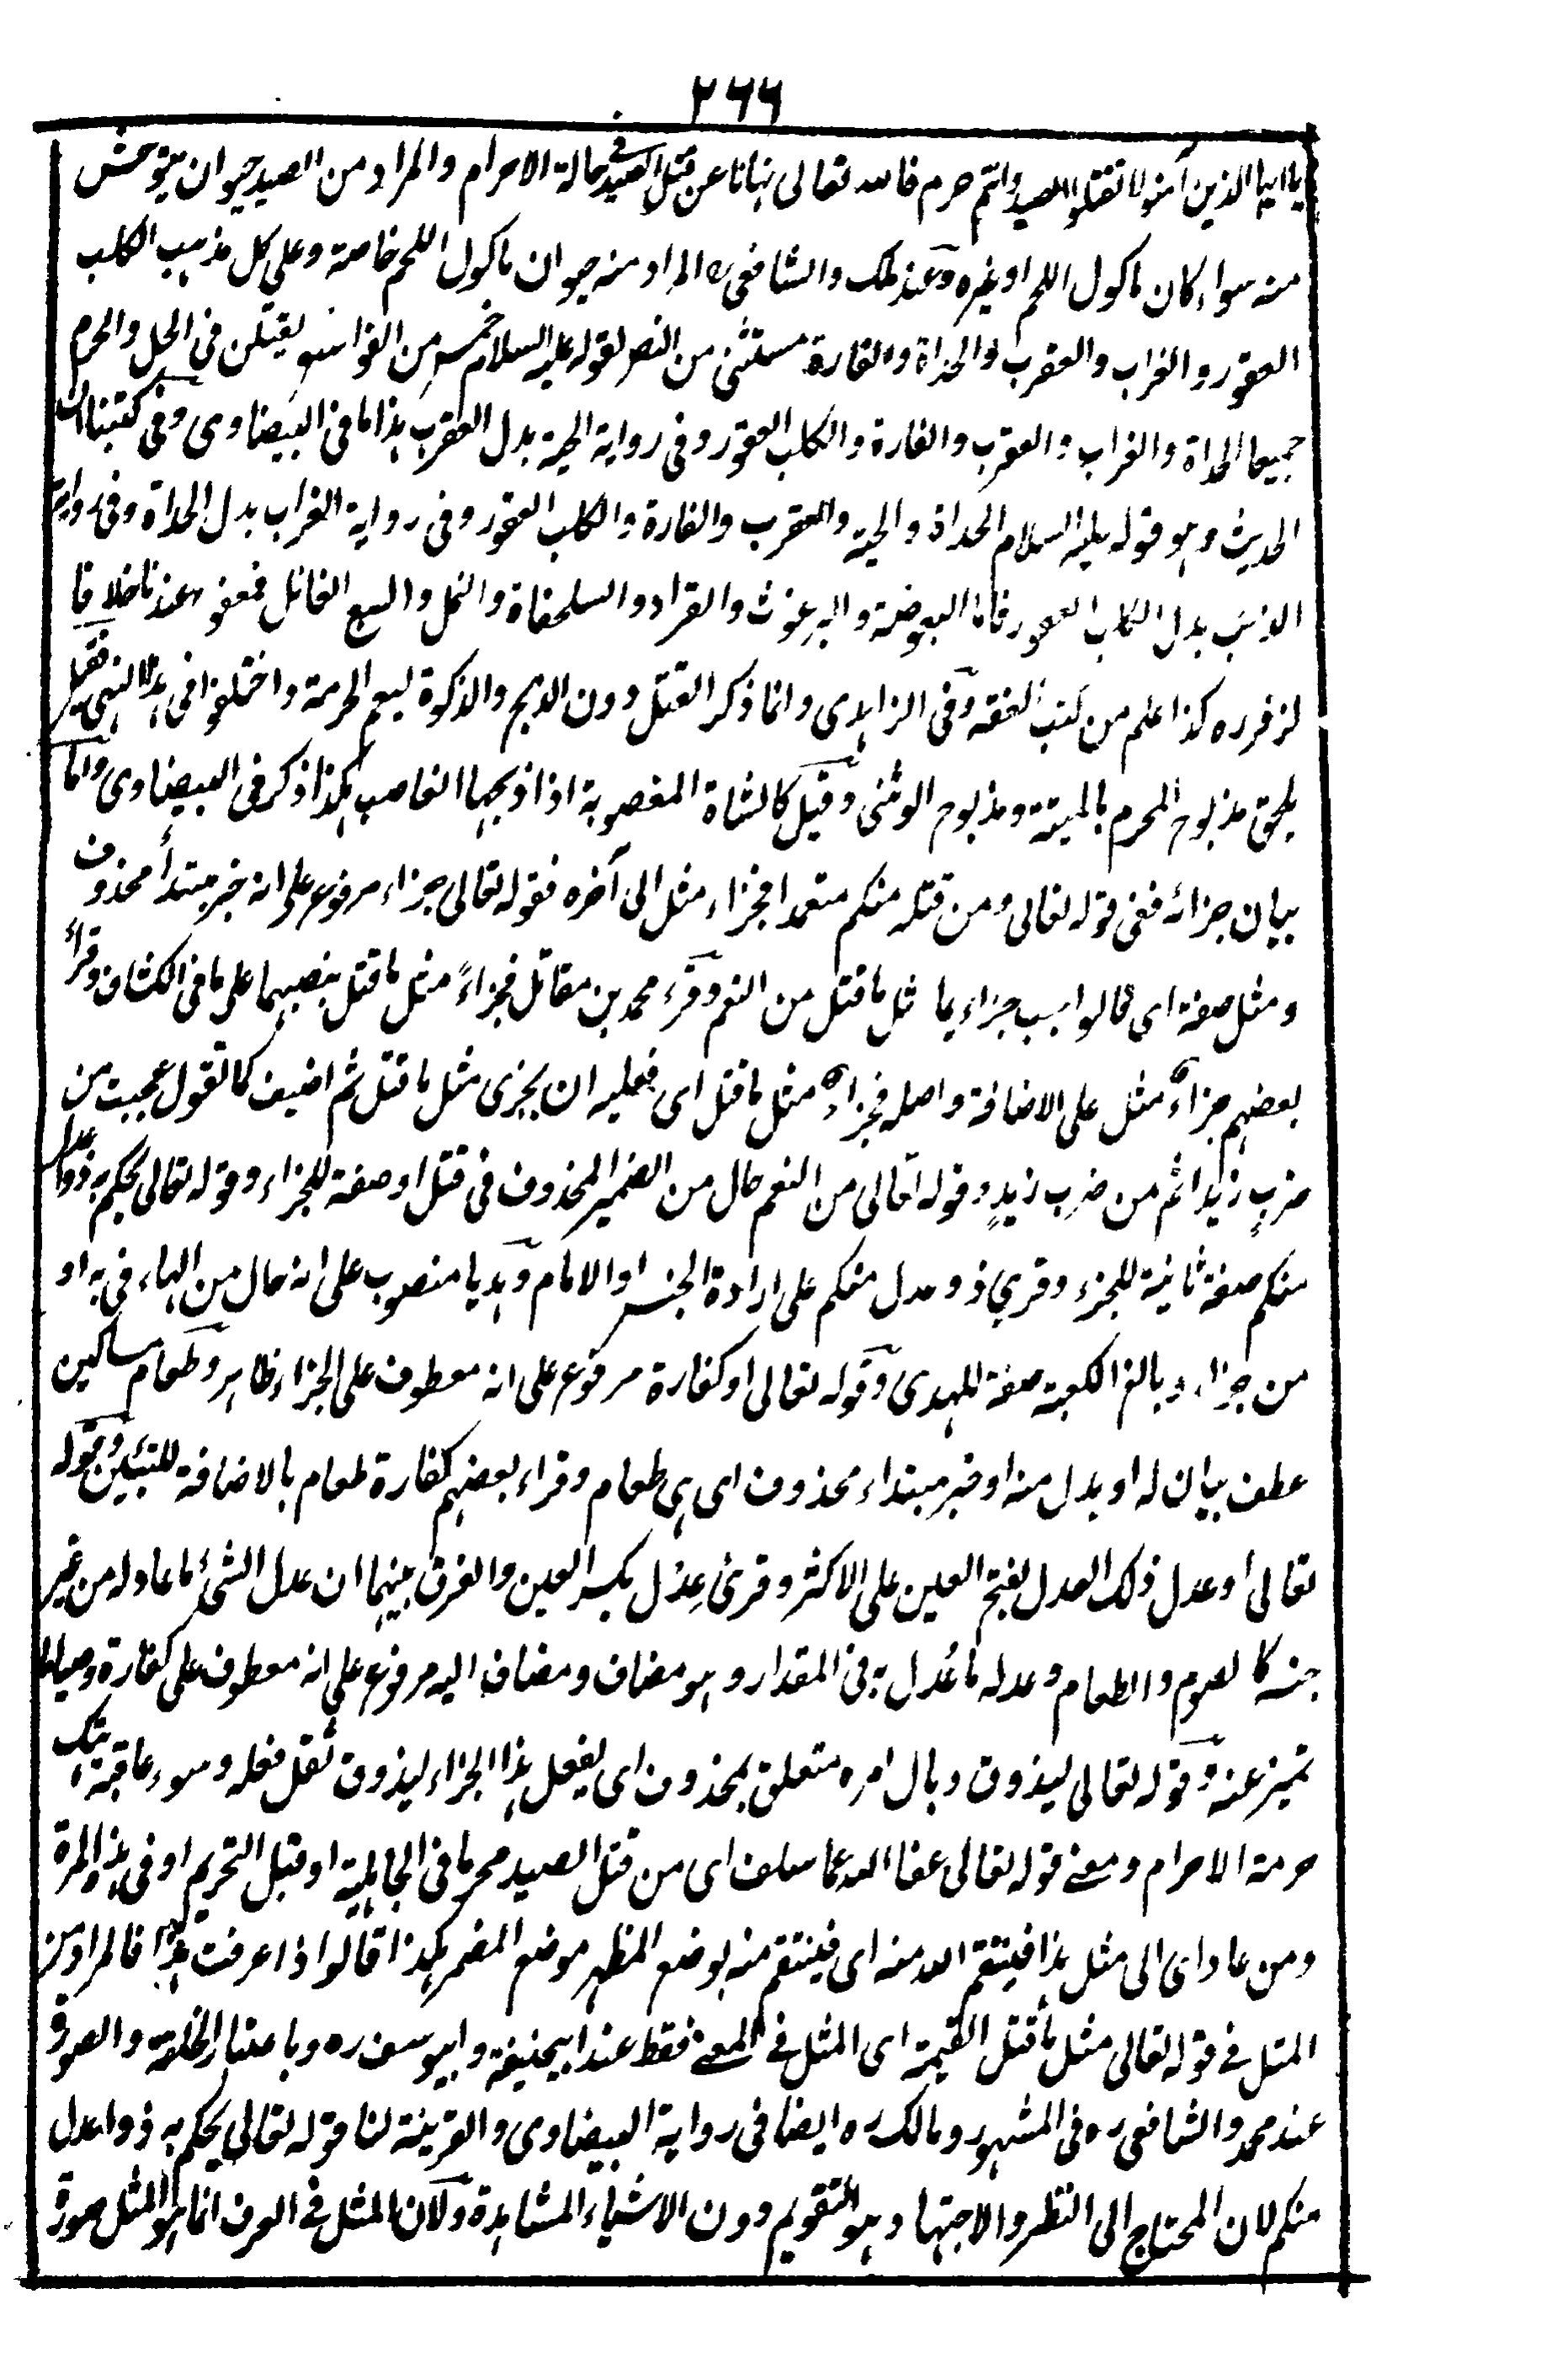 ٢٦٦
يا ايها الذين آمنوا لا تقتلوا الصيد وانتم حرم فالله تعالى نهانا عن قتل الصيد فى حالة الاحرام والمراد من الصيد حيوان يتوحش
منه سواء كان ماكول اللحم او غيره وعند ملك والشافعى ره المراد منه حيوان ماكول اللحم خاصة وعلى كل مذهب الكلب
العقور والغراب والعقرب والحداة والفارة مستثنى من النص لقوله عليه السلام خمس من الفواسق يقتلن فى الحل والحرم
جميعا الحداة والغراب والعقرب والفارة والكلب العقور وفى رواية الحية بدل العقرب هذا ما فى البيضاوى وفى كتبنا ان
الحديث وهو قوله عليه السلام الحداة والحية والعقرب والفارة والكلب العقور وفى رواية الغراب بدل الحداة وفى رواية
الذئب بدل الكلب العقور فاما البعوضة والبرغوث والقراد والسلحفاة والنمل والسبع القاتل فمعفو عندنا خلافا
لزفر ره كذا علم من كتب الفقه وفى الزاهدى وانما ذكر القتل دون الذبح والذكوة ليعم الحرمة واختلفوا فى هذا النهى فقيل
يلحق مذبوح المحرم بالميتة ومذبوح الوثنى وقيل كالشاة المغصوبة اذا ذبحها الغاصب هكذا ذكر فى البيضاوى واما
بيان جزائه ففى قوله تعالى ومن قتله منكم متعمدا فجزاء مثل الى آخره فقوله تعالى جزاء مرفوع على انه خبر مبتدأ محذوف
ومثل صفة اى فالواجب جزاء يماثل ما قتل من النعم وقرء محمد بن مقاتل فجزاءً مثل ما قتل بنصبهما على ما فى الكشاف وقرأ
بعضهم جزاءُ مثل على الاضافة واصله فجزاءٌ مثل ما قتل اى فعليه ان يجزى مثل ما قتل ثم اضيف كما تقول عجبت من
ضربٍ زيدا ثم من ضرب زيدٍ وقوله تعالى من النعم حال من الضمير المحذوف فى قتل او صفة للجزاء وقوله تعالى يحكم به ذوا عدل
منكم صفة ثانية للجزء وقري ذو عدل منكم على ارادة الجنس او الامام وهديا منصوب على انه حال من الهاء فى به او
من جزاء وبالغ الكعبة صفة للهدى وقوله تعالى او كفارة مرفوع على انه معطوف على الجزاء ظاهر وطعام مساكين
عطف بيان له او بدل منه او خبر مبتداء محذوف اى هى طعام وقراء بعضهم كفارة طعام بالاضافة للتبيين وقوله
تعالى او عدل ذلك العدل بفتح العين على الاكثر وقرئ عِدل بكسر العين والفرق بينهما ان عدل الشئ ما عادله من غير
جنسه كالصوم والطعام وعدله ما عُدل به فى المقدار وهو مضاف ومضاف اليه مرفوع على انه معطوف على كفارة وصياما
تميز عنه وقوله تعالى ليذوق وبال امره متعلق بمحذوف اى يفعل هذا الجزاء ليذوق ثقل فعله وسوء عاقبة هتك
حرمة الاحرام ومعنى قوله تعالى عفا الله عما سلف اى من قتل الصيد محرما فى الجاهلية او قبل التحريم او فى هذه المرة
ومن عاد اى الى مثل هذا فينتقم الله منه اى فينتقم منه بوضع المظهر موضع المضمر هكذا قالوا اذا عرفت هذا فالمراد من
المثل فى قوله تعالى مثل ما قتل القيمة اى المثل فى المعنى فقط عند ابيحنيفة وابيوسف ره وباعتبار الخلقة والصورة
عند محمد والشافعى ره فى المشهور ومالك ره ايضا فى رواية البيضاوى والقرينة لنا قوله تعالى يحكم به ذوا عدل
منكم لان المحتاج الى النظر والاجتهاد هو التقويم دون الاشياء المشاهدة ولان المثل فى العرف انما هو المثل صورة